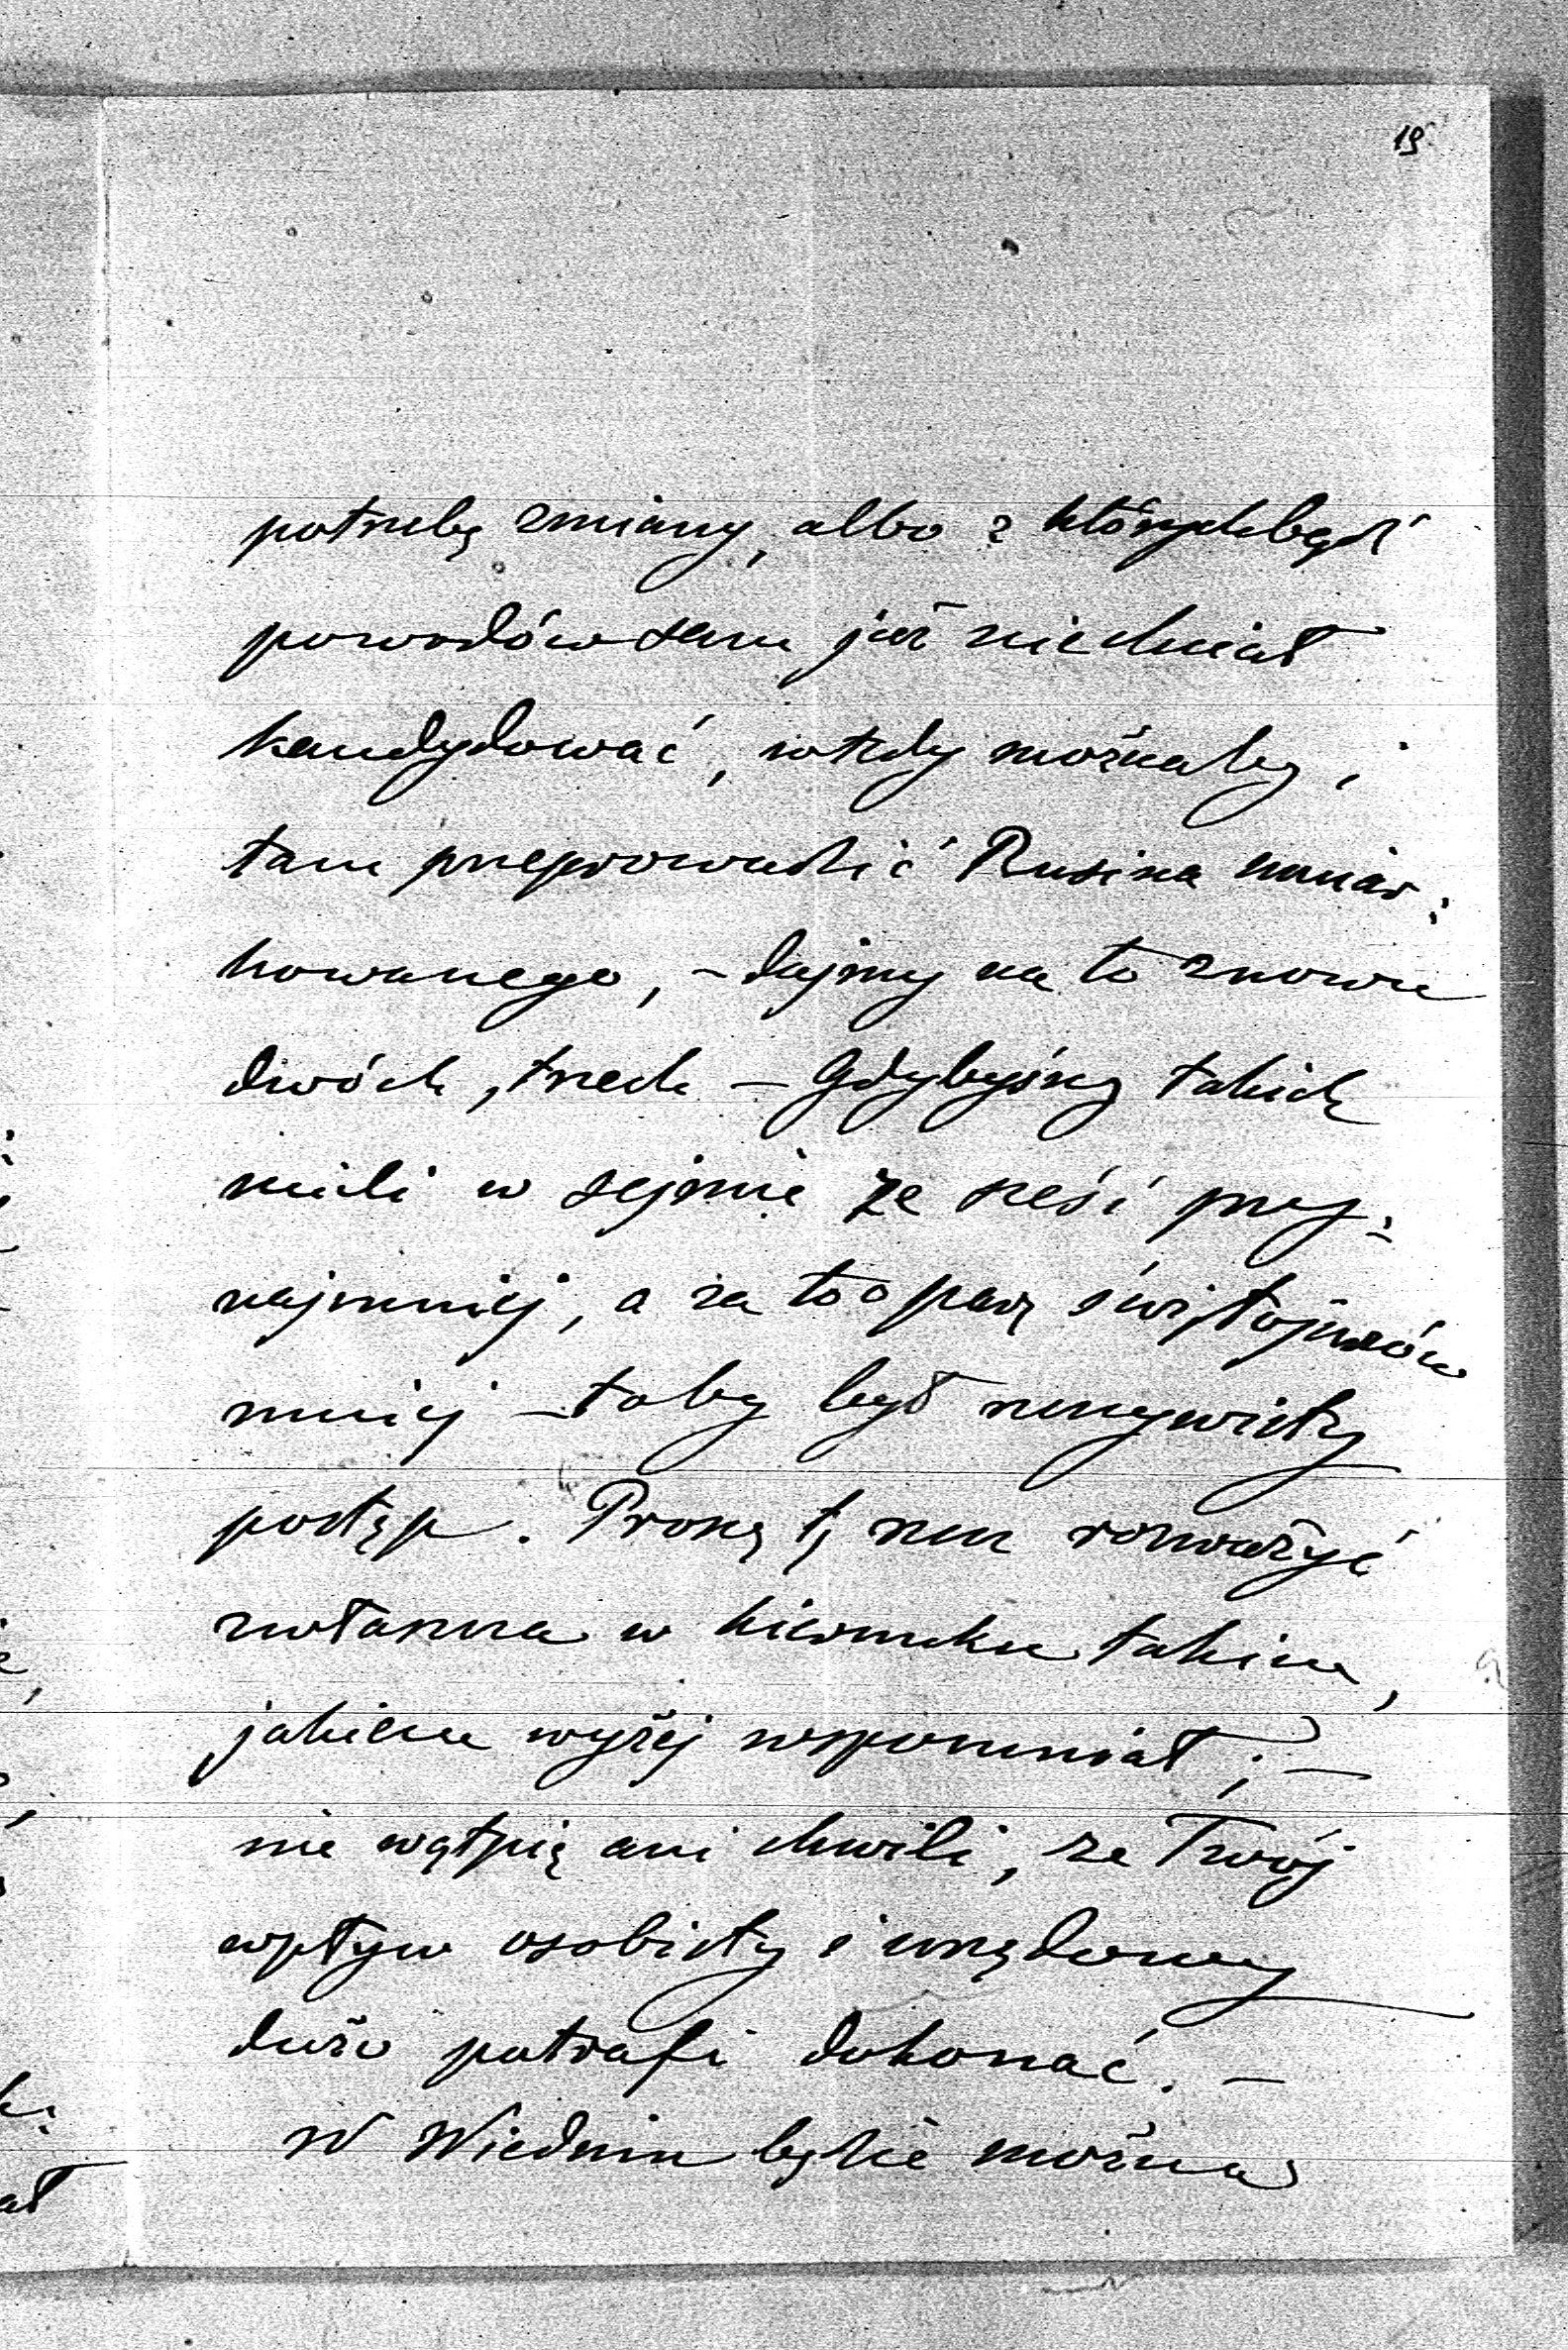 19
potrzebę zmiany, albo z którychbądź
powodów sam już niechciał
kandydować, wtedy możnaby i
tam przeprowadzić Rusina umiar:
kowanego, – dajmy na to znowu
dwóch, trzech – Gdybyśmy takich
mieli w sejmie ze sześć przy:
najmniej, a za to o parę świętojurców
mniej – toby był rzeczywisty
postęp. Proszę tę rzecz rozważyć
zwłaszcza w kierunku takim,
jakiem wyżej wspomniał; –
nie wątpię ani chwili, że Twój
wpływ osobisty i urzędowy
dużo potrafi dokonać. –
W Wiedniu będzie można